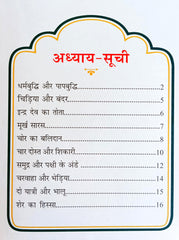 अध्याय-सूची
धर्मबुद्धि और पापबुद्धि 2
चिड़िया और बंदर 5
इन्द्र देव का तोता 6
मूर्ख सारस 7
चोर का बलिदान 8
चार दोस्त और शिकारी 10
समुद्र और पक्षी के अंडे 12
चरवाहा और भेड़िया 14
दो यात्री और भालू 15
शेर का हिस्सा 16